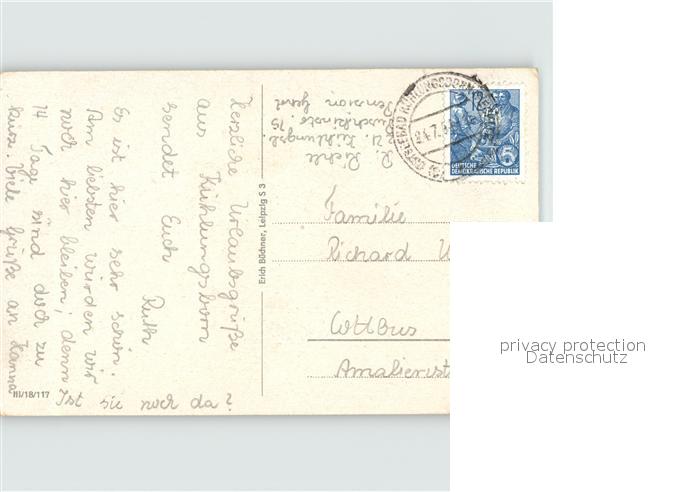 Herzliche Urlaubsgrüße
aus Kühlungsborn
sendet Euch
Ruth
Es ist hier sehr schön.
Am liebsten würden wir
noch hier bleiben, denn
14 Tage sind doch zu
kurz. Viele Grüße an Hanna
Ist sie noch da?
III/18/117
Erich Büchner, Leipzig S 3
R.
Z. Kühlungsb.
15
Pension
24.7.
DEUTSCHE
DEMOKRATISCHE REPUBLIK
5
Familie
Richard
Cottbus
Amalienst
privacy protection
Datenschutz